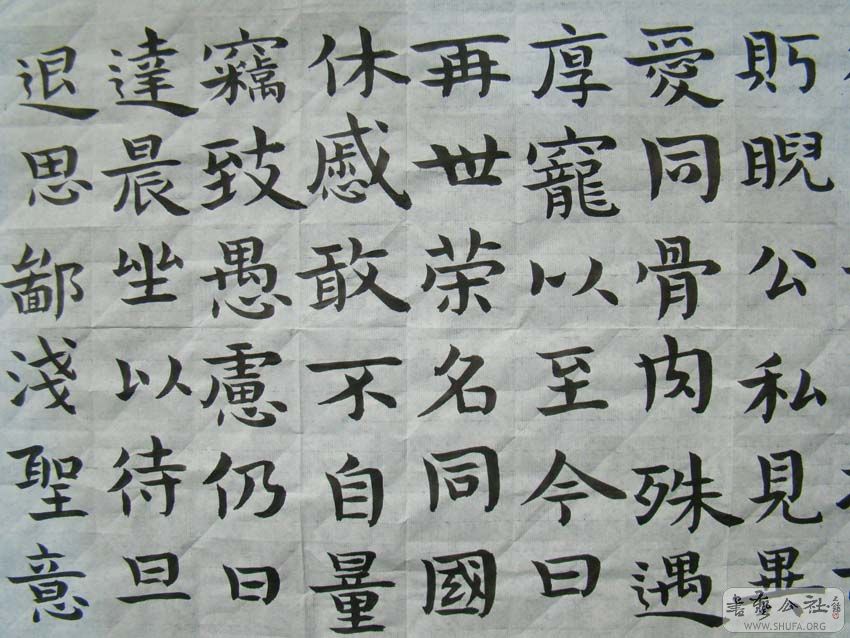 睨公私見異
愛同骨肉殊遇
厚寵以至今日
再世荣名同國
休慼敢不自量
竊致愚慮仍日
達晨坐以待旦
退思鄙淺聖意
書藝公社
WWW.SHUFA.ORG